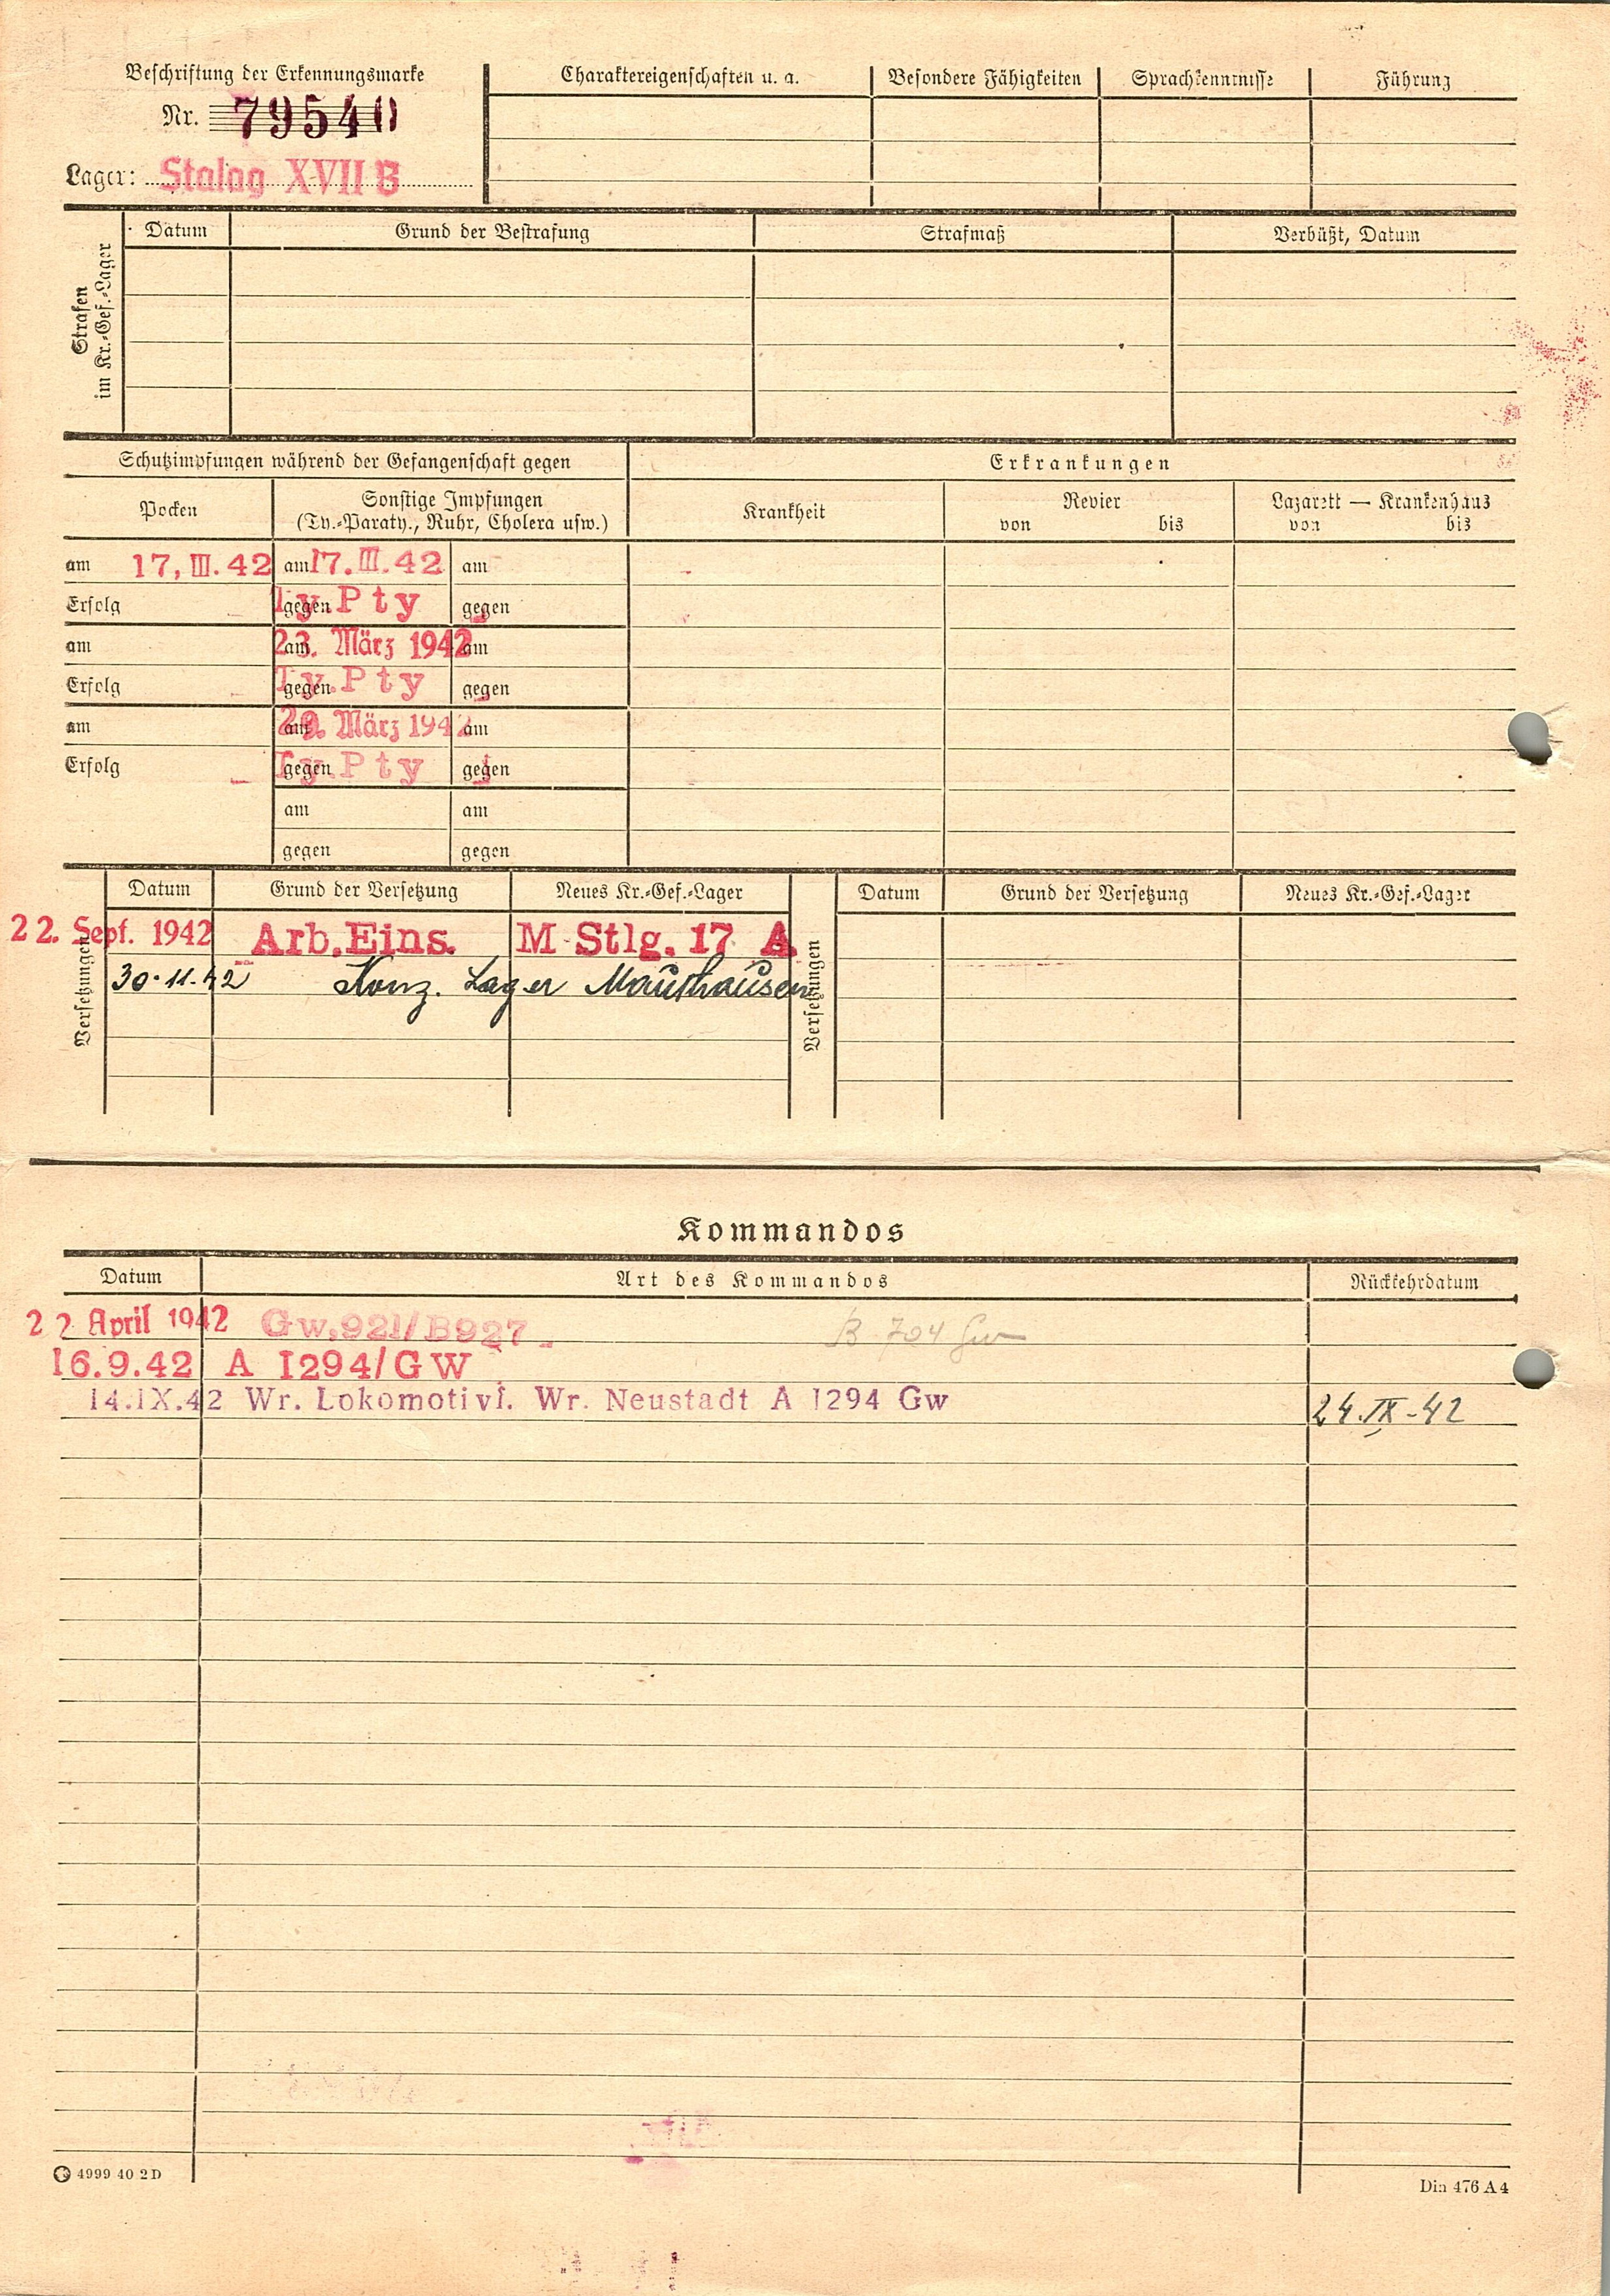 Beschriftung der Erkennungsmarke
Nr. 79540
Lager: Stalag XVII B
Charaktereigenschaften u. a. Besondere Fähigkeiten Sprachkenntnisse Führung
Strafen
im Kr.-Gef.-Lager
Datum Grund der Bestrafung Strafmaß Verbüßt, Datum
Schutzimpfungen während der Gefangenschaft gegen Erkrankungen
Pocken Sonstige Impfungen Krankheit Revier Lazarett — Krankenhaus
(Ty.-Paraty., Ruhr, Cholera usw.) von bis von bis
am 17. III. 42 am 17. III. 42 am
Erfolg gegen Ty. Pty gegen
am am 23. März 1942 am
Erfolg gegen Ty. Pty gegen
am am 29. März 1942 am
Erfolg gegen Ty. Pty gegen
am am
gegen gegen
Versetzungen Datum Grund der Versetzung Neues Kr.-Gef.-Lager Versetzungen Datum Grund der Versetzung Neues Kr.-Gef.-Lager
22. Sept. 1942 Arb. Eins. M-Stlg. 17 A
30.11.42 Konz. Lager Mauthausen
Kommandos
Datum Art des Kommandos Rückkehrdatum
22 April 1942 Gw. 921/B927 B 704 Gw
16.9.42 A 1294/GW
14.IX.42 Wr. Lokomotivf. Wr. Neustadt A 1294 Gw 24.IX-42
4999 40 2D
Din 476 A 4